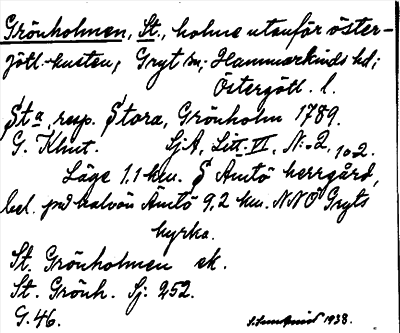 Grönholmen, St., holme utanför öster-
götl. kusten, Gryt sn, Hammarkinds hd;
Östergötl. l.
Sta, resp. Stora, Grönholm 1789.
G. Klint. SjA, Litt. VI, No 2, 102.
Läge 1.1 km. S Ämtö herrgård,
bel. på halvön Ämtö 9,2 km. NNO Gryts
kyrka.
St. Grönholmen ek.
St. Grönh. Sj: 252.
G. 46. 1938.